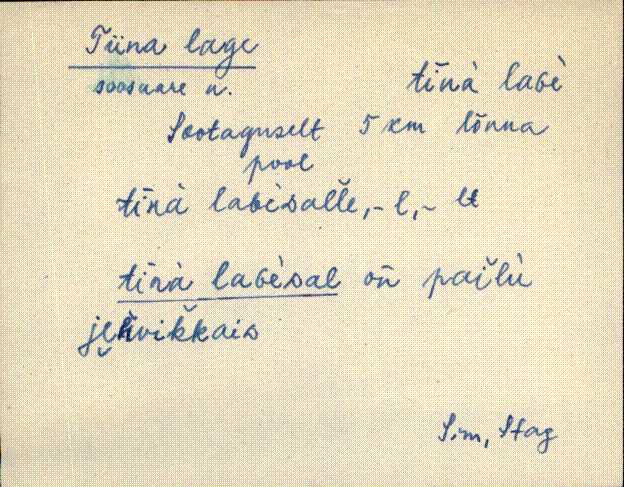 Tiina lage
soosaare n. tīnà laɢè
Sootaguselt 5 km lõuna
pool
tīnà laɢèsalle, - l, - lt
tīnà laɢèsal oñ pal̆lù
jɛhvikkais
Sim, Stag